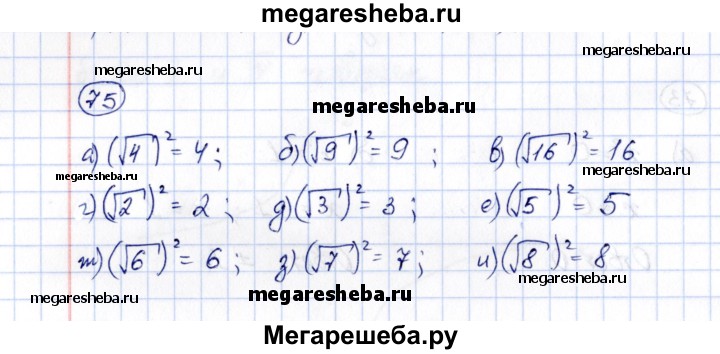 megaresheba.ru
megaresheba.ru
megaresheba.ru
75
megaresheba.ru
а) (√4)² = 4; б) (√9)² = 9 ; в) (√16)² = 16
megaresheba.ru
megaresheba.ru
г) (√2)² = 2 ; д) (√3)² = 3 ; е) (√5)² = 5
ж) (√6)² = 6 ; з) (√7)² = 7; и) (√8)² = 8
megaresheba.ru
megaresheba.ru
megaresheba.ru
Мегарешеба.ру